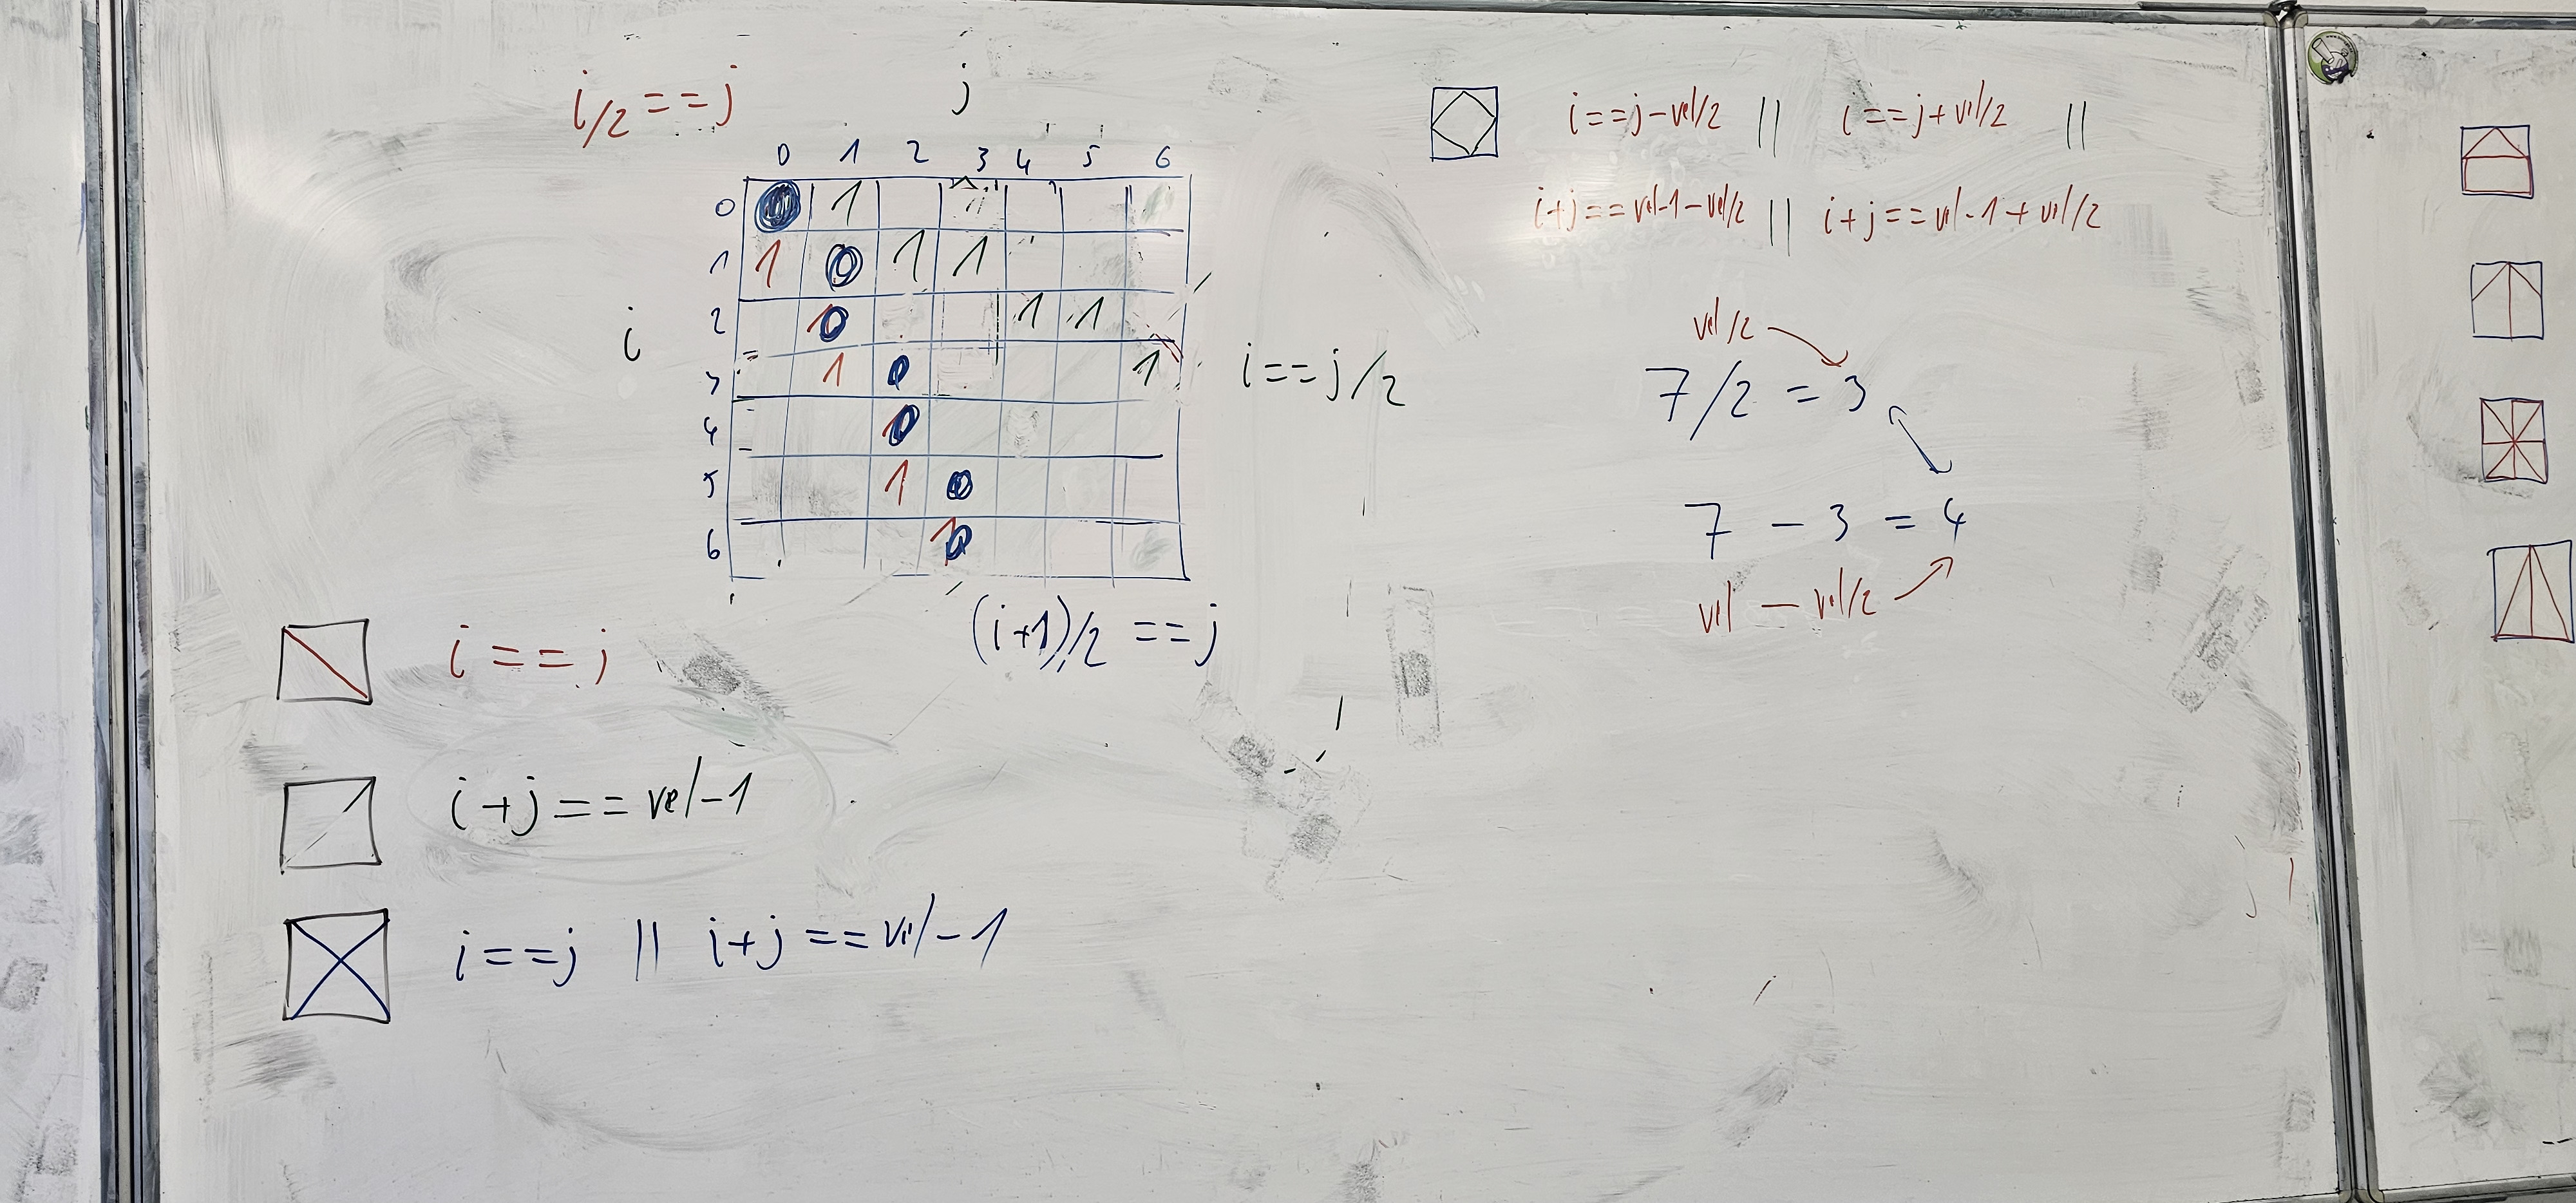 i/2 == j
j
0 1 2 3 4 5 6
0 1
1 1 0 1 1
i
2 1 0 1 1
3 1 0 1
4 1 0
5 1 0
6 1 0
i == j/2
(i+1)/2 == j
i == j
i+j == vel-1
i == j || i+j == vel-1
i == j-vel/2 || i == j+vel/2 ||
i+j == vel-1-vel/2 || i+j == vel-1+vel/2
vel/2
7/2 = 3
7 - 3 = 4
vel - vel/2